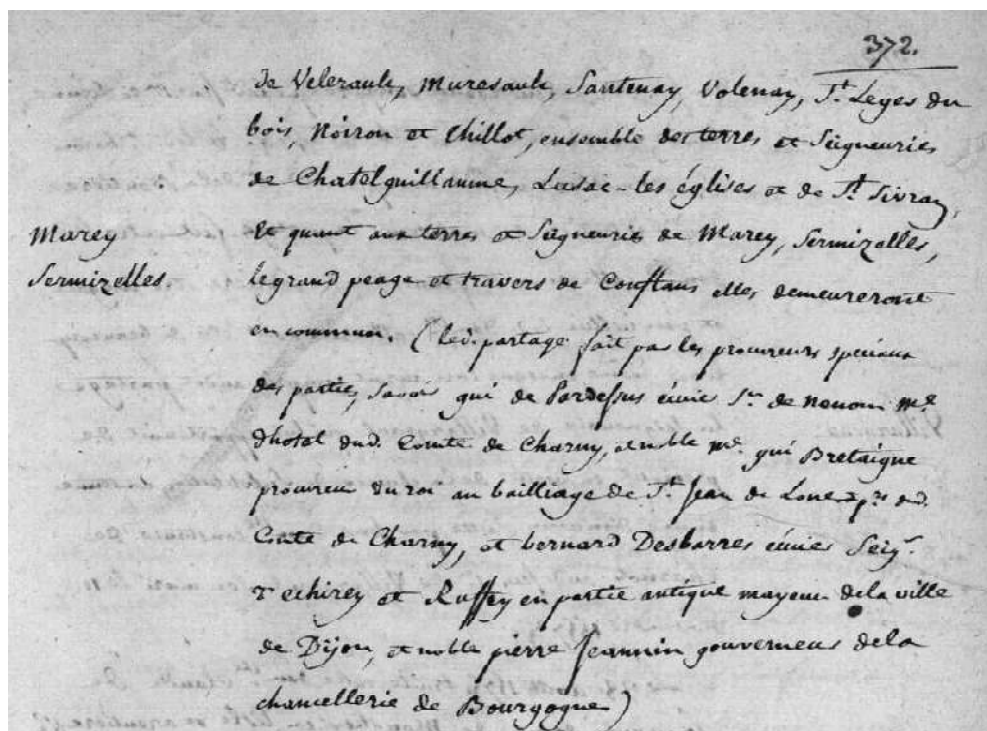 372.
de Velerault, Muresault, Santenay, Volenay, St. Leges du
bois, Noiron et Chillot, ensemble des terres et Seigneuries
de Chatelguillaume, Lusac-les églises et de St. Sivray,
Marey
Sermizelles.
Et quant aux terres et Seigneuries de Marey, Sermizelles,
le grand peage et travers de Conflans elles demeureront
en commun. (led. partage fait par les procureurs speciaux
des parties, savoir gui de Pardessus écuier Sr. de nenom Me.
dhotel dud. Comte de Charny, et noble Me. gui Bretaigne
procureur du roi au bailliage de St. Jean de Lone pr. dud.
Comte de Charny, et bernard Desbarres écuier Seigr.
Techirey et Ruffey en partie antique mayeur de la ville
de Dijon, et noble pierre Jeannin gouverneur de la
chancellerie de Bourgogne)